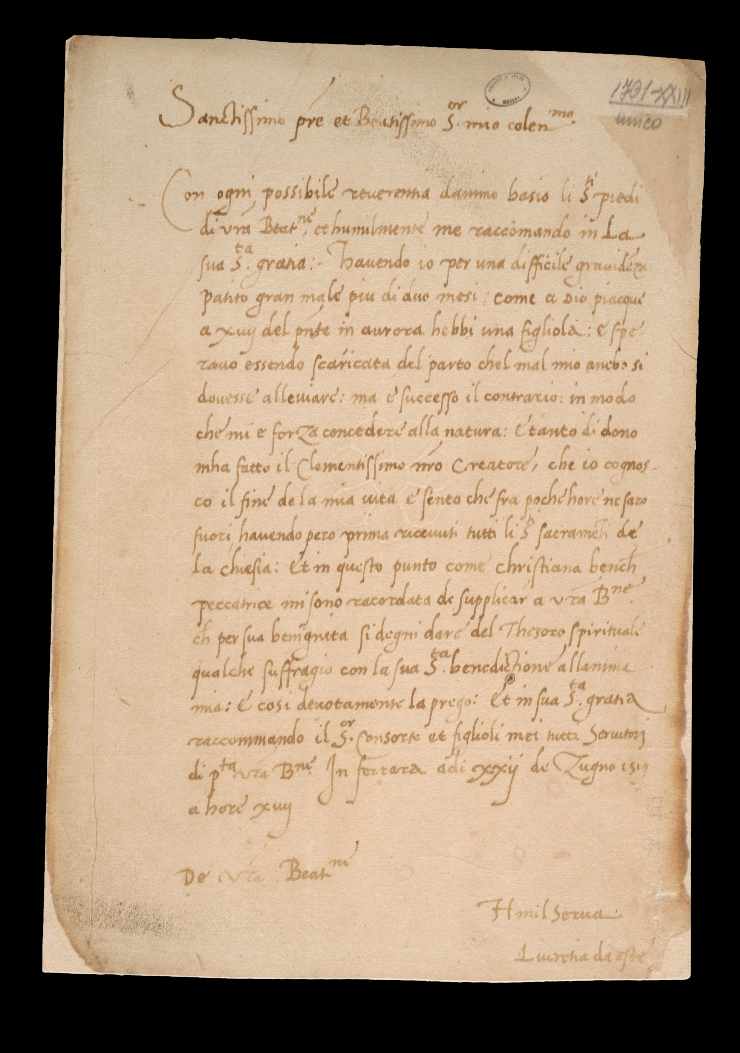 1731-XXIII
unico
Sanctissimo pre et Beatissimo S.or mio colen.mo
Con ogni possibile reverentia danimo basio li S.ti piedi
di vra Beat.ne, et humilmente me raccomando in La
sua S.ta gratia: Havendo io per una difficile gravideza
patito gran male piu di duo mesi: come a Dio piacque
a xiiij del pnte in aurora hebbi una figliola: e spe
ravo essendo scaricata del parto chel mal mio ancho si
dovesse alleviare: ma e successo il contrario: in modo
che mi e forza concedere alla natura: E tanto di dono
mha fatto il Clementissimo nro Creatore, che io cognos-
co il fine de la mia vita e sento che fra poche hore ne saro
fuori havendo pero prima ricevuti tutti li S.ti sacrameti de
la chiesia: Et in questo punto come christiana bench
peccatrice mi sono racordata de supplicar a vra B.ne
ch per sua benignita si degni dare del Thesoro spirituale
qualche suffragio con la sua S.ta benedictione allanima
mia: E cosi devotamente la prego: Et in sua S.ta gratia
raccommando il S.or Consorte et figlioli mei tutti Servitori
di p.ta vra B.ne. In ferrara adi xxij de Zugno
a hore xiiij
De vra Beat.ne
Hmil Serva
Lucretia da este